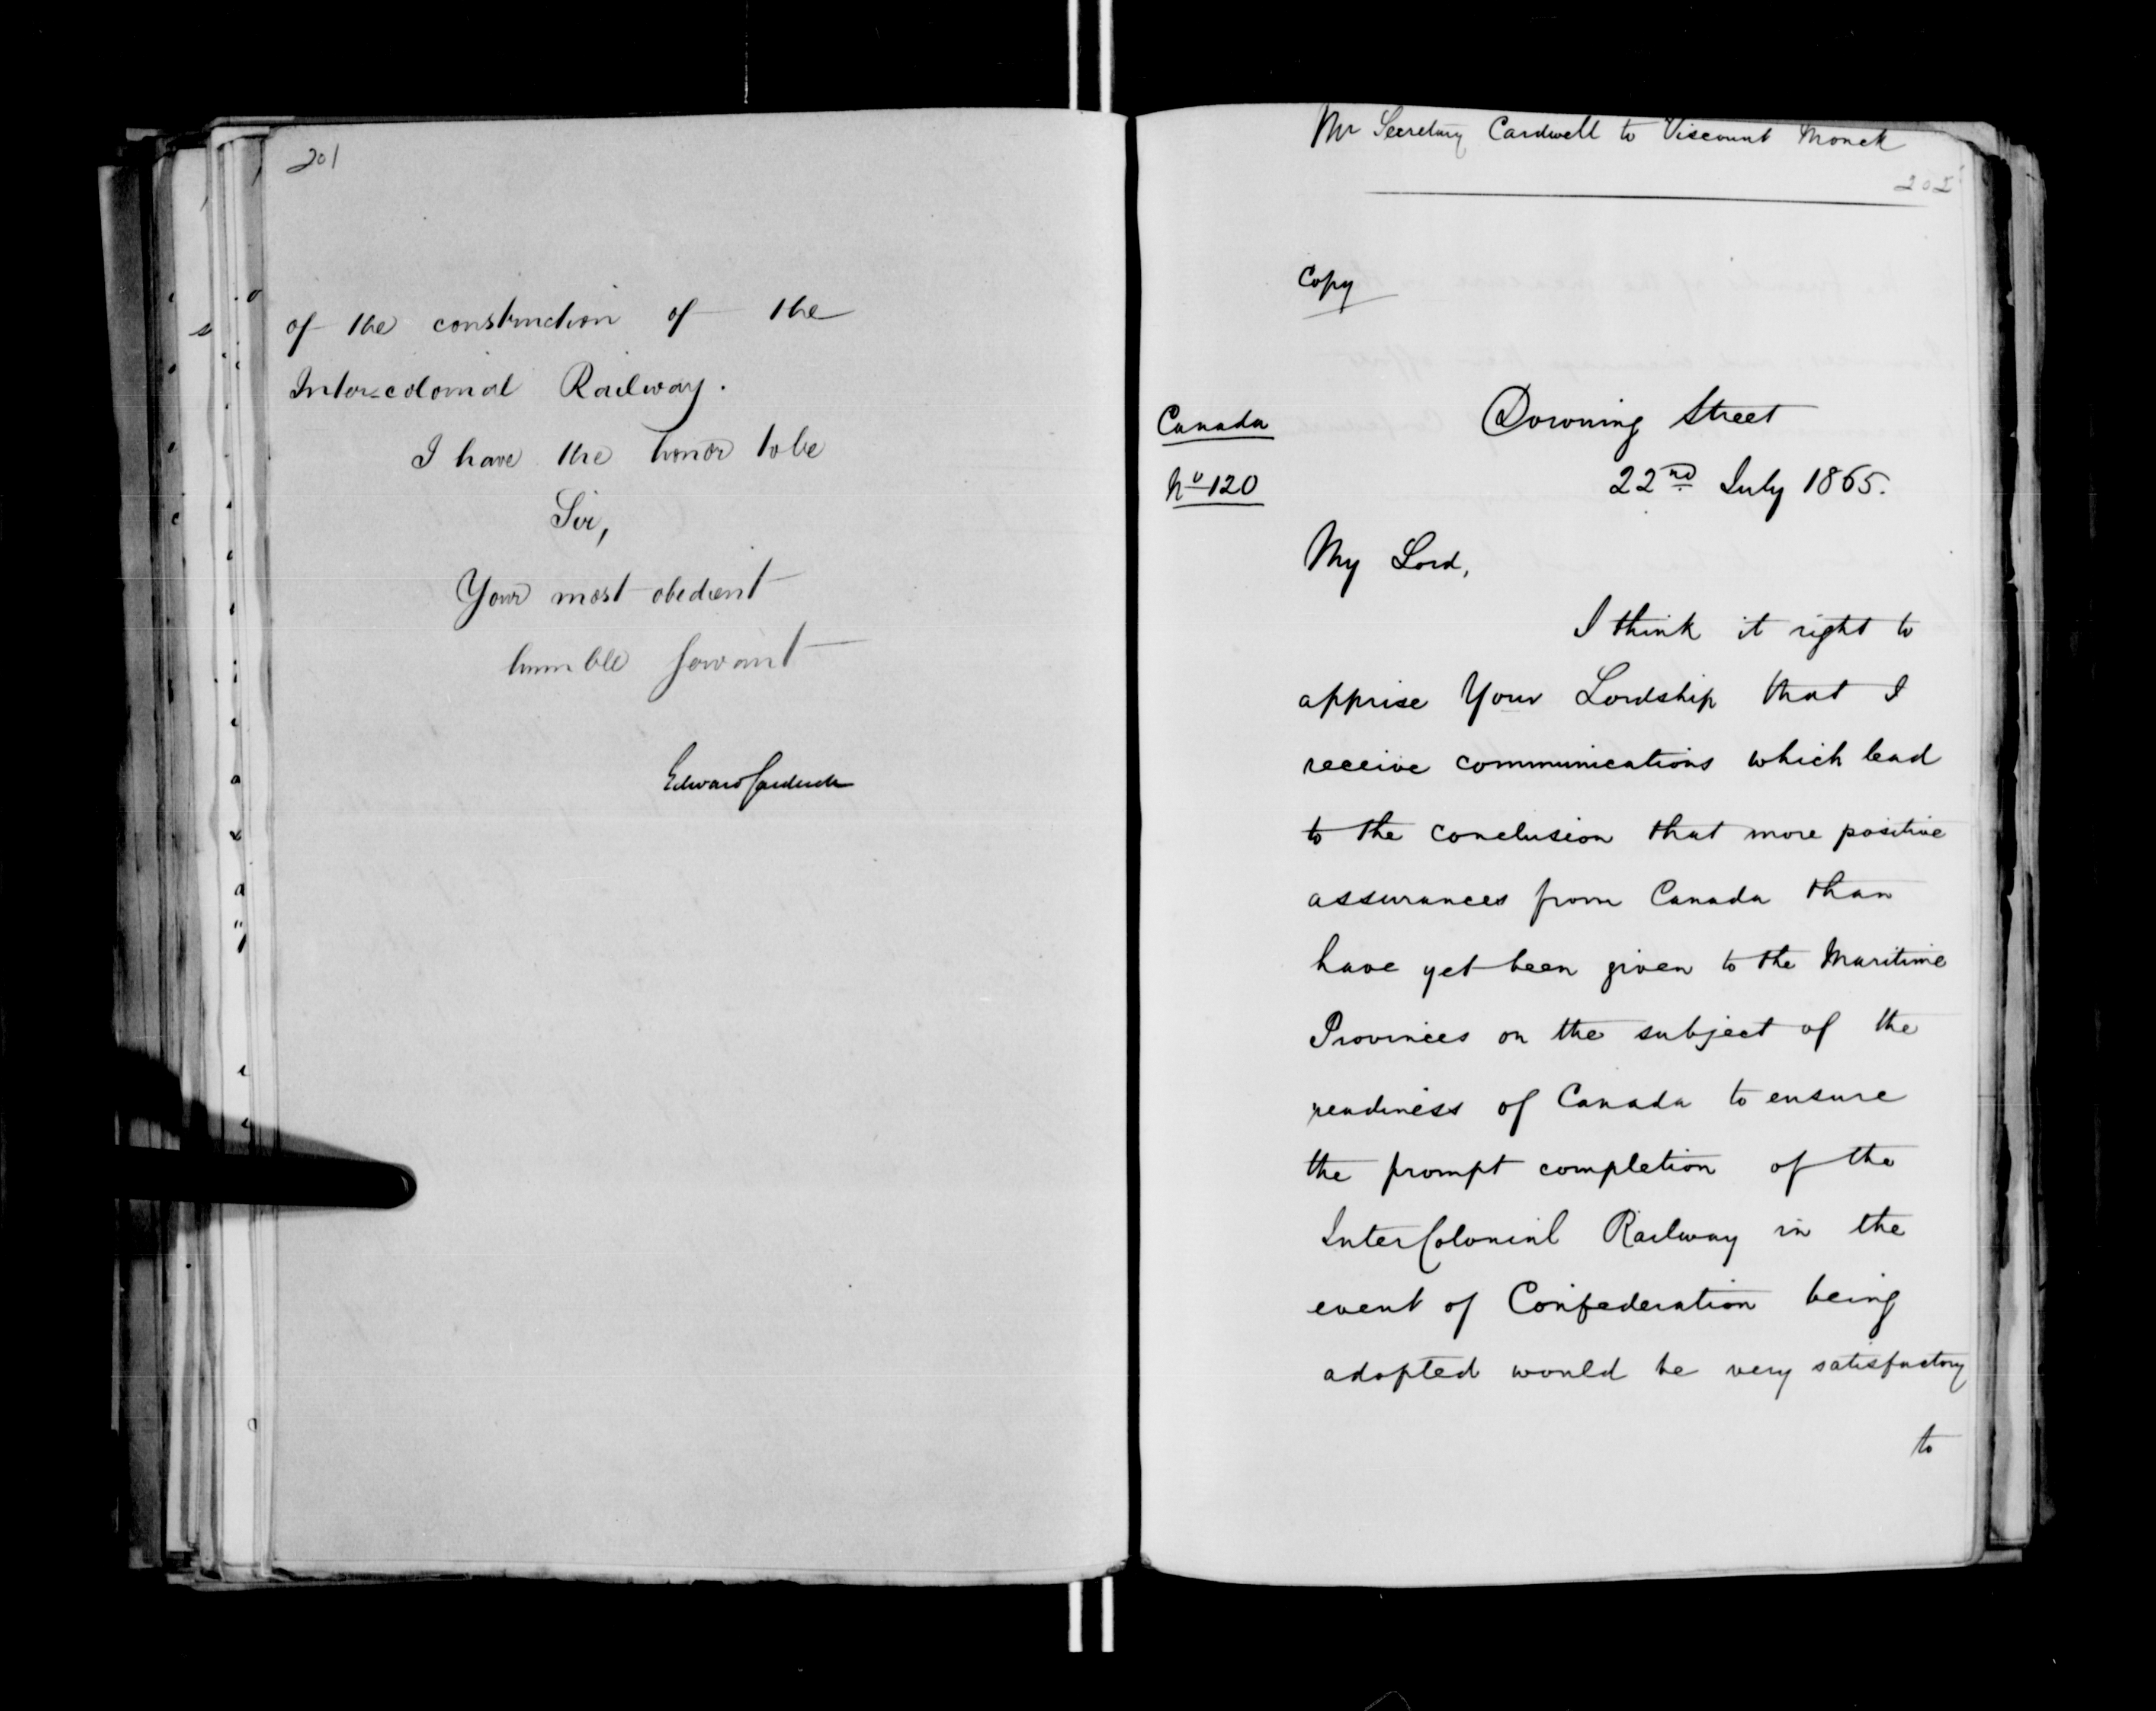 201
of the construction of the
Inter=colonial Railway.
I have the honor to be
Sir,
Your most obedient
humble Servant
Edward Cardwell
Mr Secretary Cardwell to Viscount Monck
202
Copy
Canada
No 120
Downing Street
22nd July 1865.
My Lord,
I think it right to
apprise Your Lordship that I
receive communications which lead
to the conclusion that more positive
assurances from Canada than
have yet been given to the Maritime
Provinces on the subject of the
readiness of Canada to ensure
the prompt completion of the
InterColonial Railway in the
event of Confederation being
adopted would be very satisfactory
to